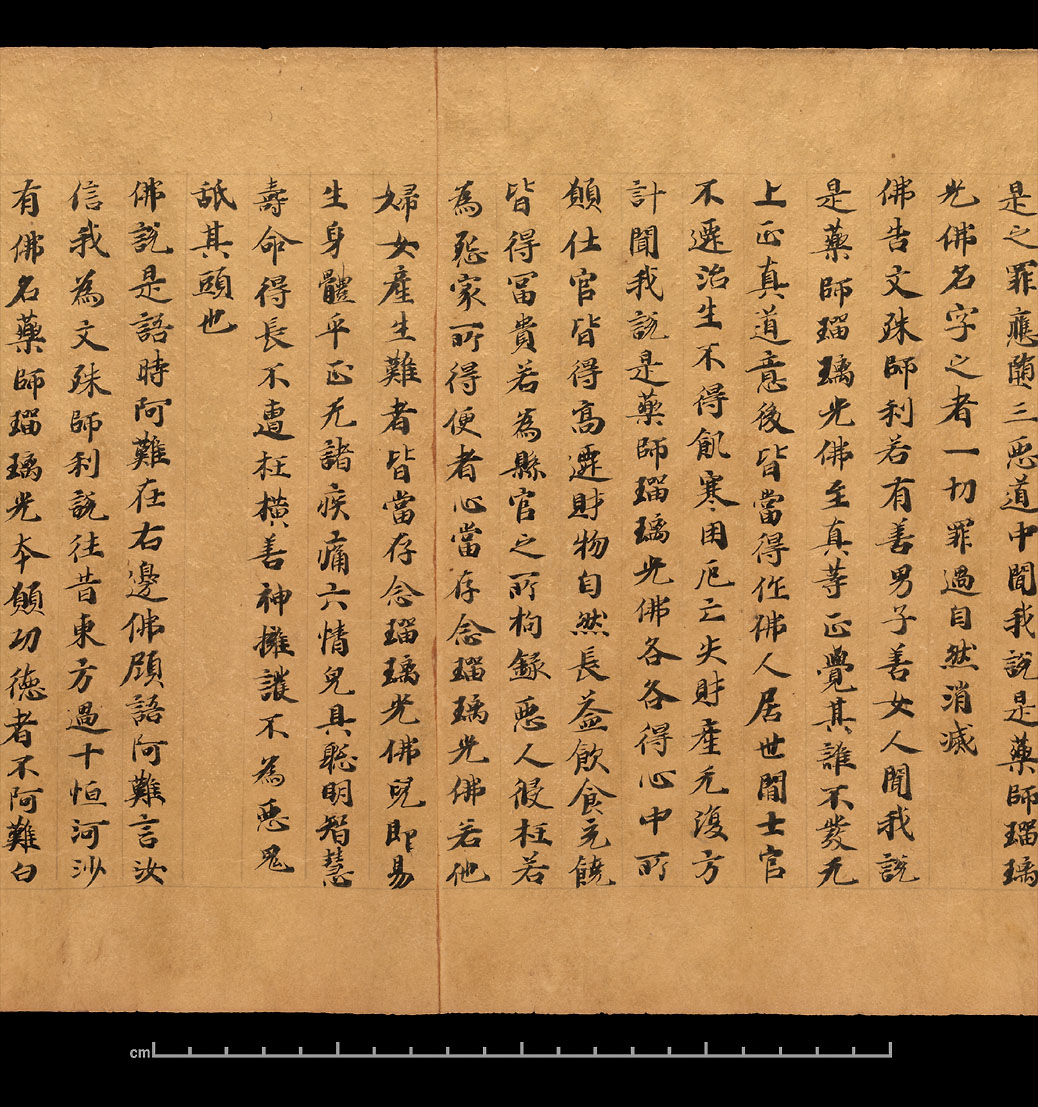 是之罪應墮三惡道中聞我說是藥師瑠璃
光佛名字之者一切罪過自然消滅
佛告文殊師利若有善男子善女人聞我說
是藥師瑠璃光佛至真等正覺其誰不發无
上正真道意後皆當得作佛人居世間士官
不遷治生不得飢寒困厄亡失財産无復方
計聞我說是藥師瑠璃光佛各各得心中所
願仕官皆得高遷財物自然長益飲食充饒
皆得冨貴若為縣官之所拘録惡人侵枉若
為怨家所得便者心當存念瑠璃光佛若他
婦女産生難者皆當存念瑠璃光佛皃即易
生身體平正无諸疾痛六情皃具聡明智慧
壽命得長不遭枉横善神擁護不為惡鬼
舐其頭也
佛說是語時阿難在右邊佛顧語阿難言汝
信我為文殊師利說往昔東方過十恒河沙
有佛名藥師瑠璃光本願功德者不阿難白
cm